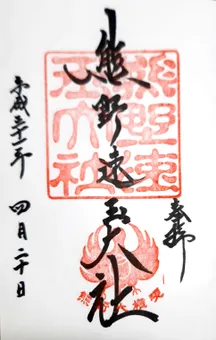 奉拝
熊野速玉大社
平成三十一年 四月二十日
熊野速玉大社